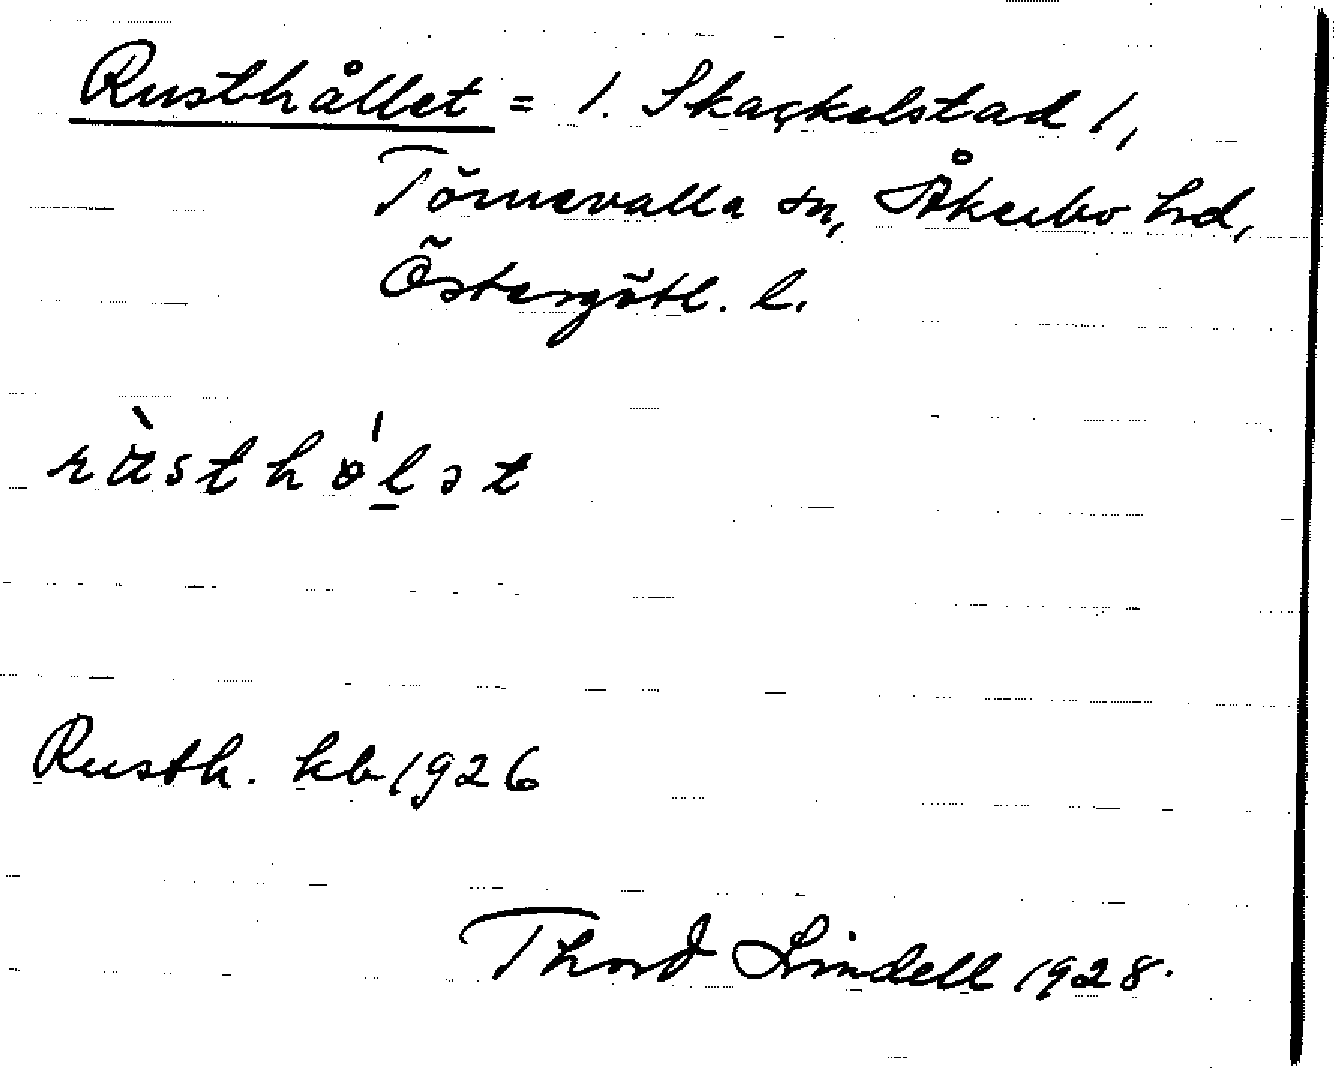 Rusthållet = 1. Skackelstad 1,
Törnevalla sn, Åkerbo hd,
Östergötl. l.
rùsthó̀l̲ət
Rusth. kb 1926
Thord Lindell 1928.